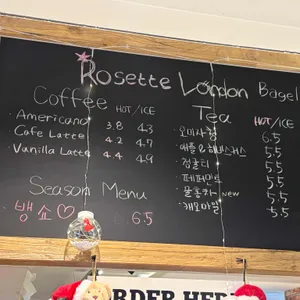 Rosette London Bagel
Coffee HOT/ICE
Americano 3.8 4.3
Cafe Latte 4.2 4.7
Vanilla Latte 4.4 4.9
Season Menu
뱅쇼♡ 6.5
Tea HOT/ICE
오미자청 6.5
애플&히비스커스 5.5
5.5
페퍼민트 5.5
NEW 5.5
캐모마일 5.5
ORDER HERE